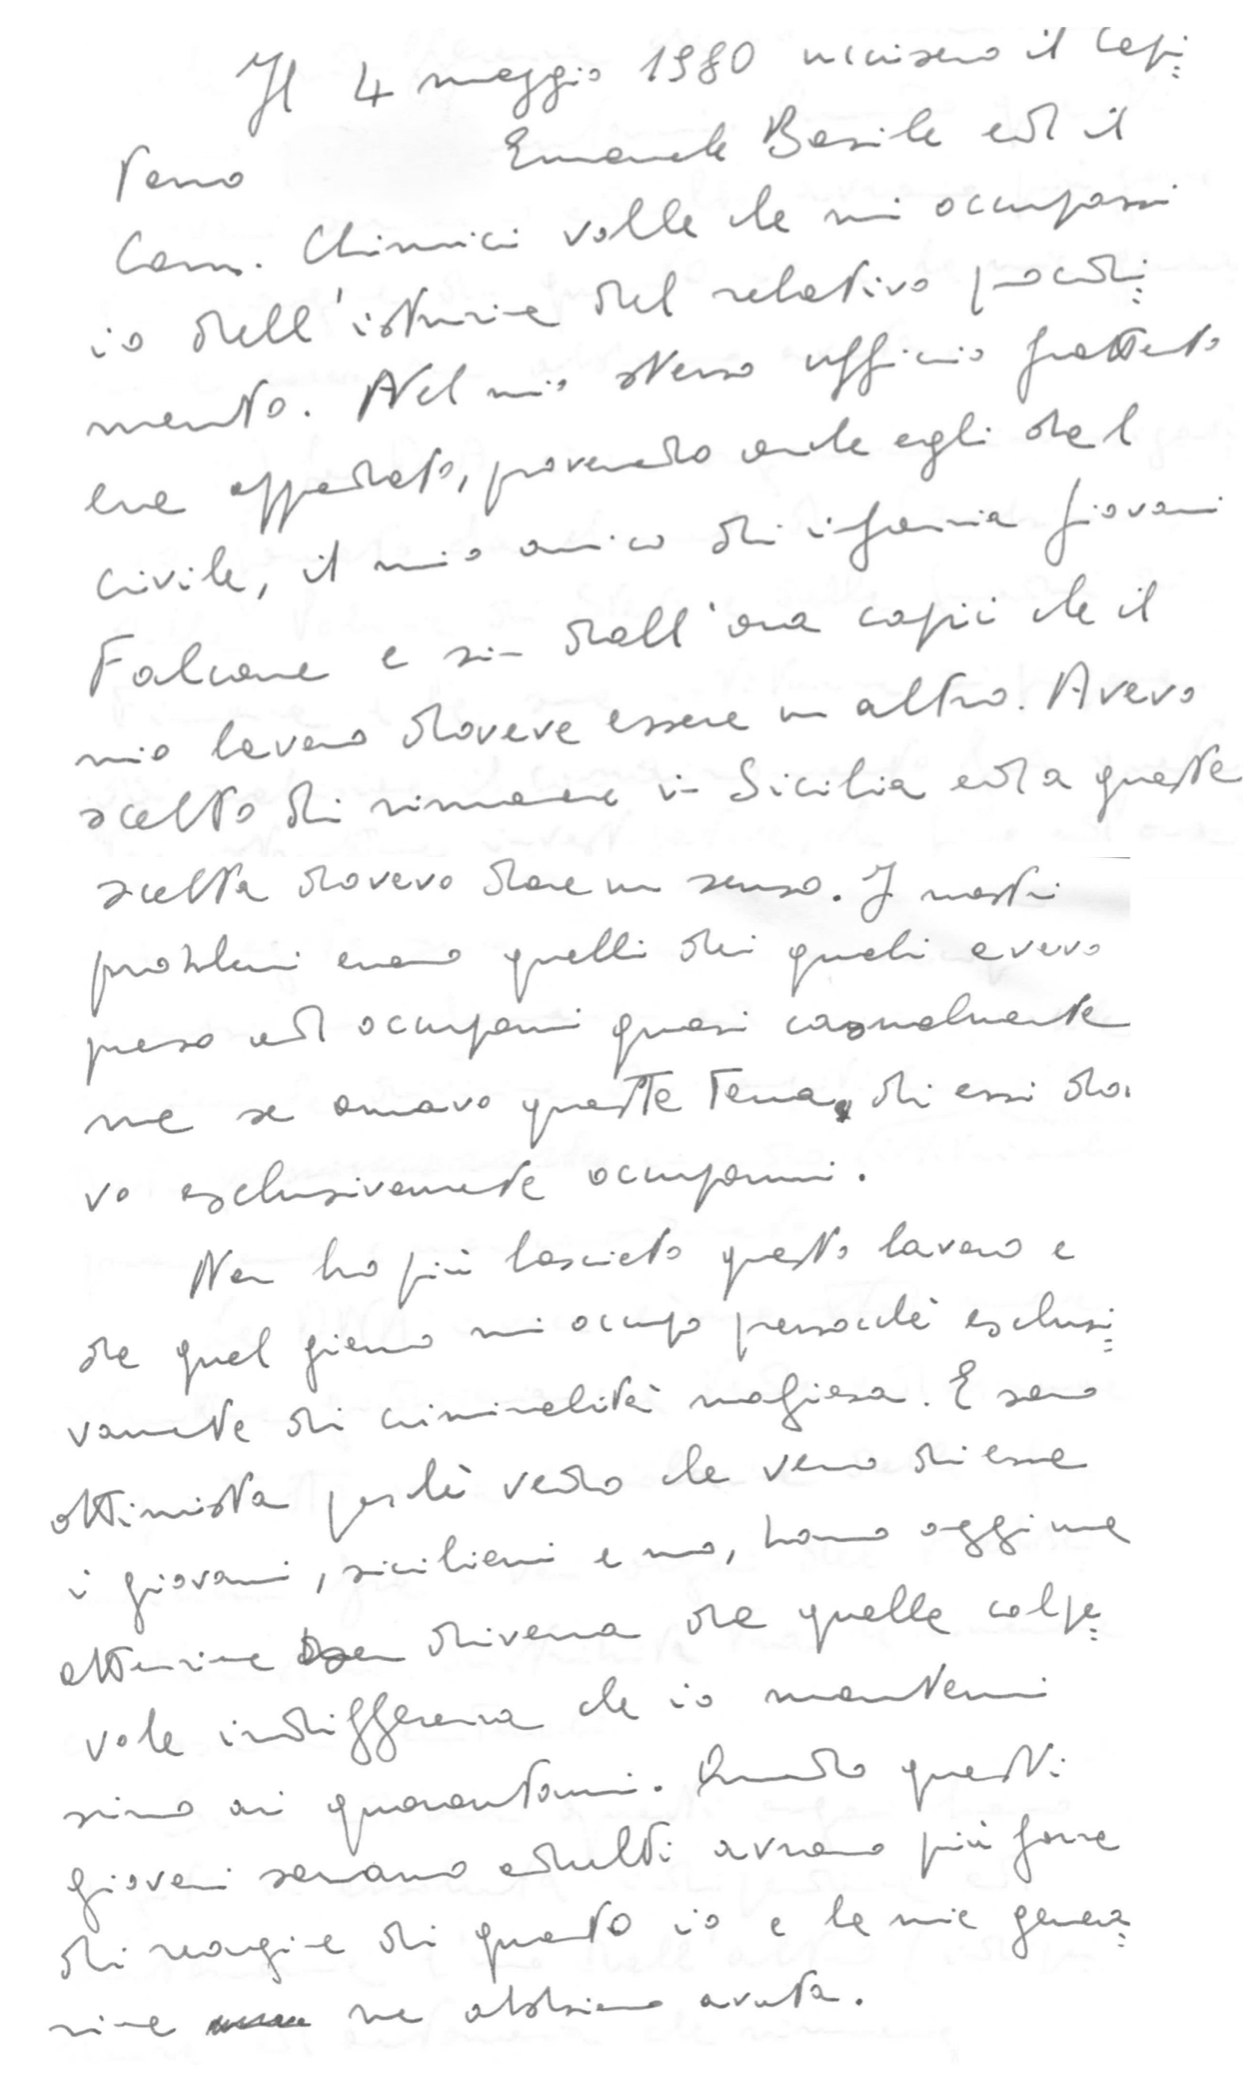 Il 4 maggio 1980 uccisero il Capi=
tano Emanuele Basile ed il
Cons. Chinnici volle che mi occupassi
io dell'istruzione del relativo procedi=
mento. Nel mio stesso ufficio frattanto
era approdato, provenendo anche egli dal
civile, il mio amico di infanzia Giovanni
Falcone e sin dall'ora capii che il
mio lavoro doveva essere un altro. Avevo
scelto di rimanere in Sicilia ed a questa
scelta dovevo dare un senso. I nostri
problemi erano quelli dei quali avevo
preso ad occuparmi quasi casualmente
ma se amavo questa terra, di essi dove
vo esclusivamente occuparmi.
Non ho più lasciato questo lavoro e
da quel giorno mi occupo pressocchè esclusi=
vamente di criminalità mafiosa. E sono
ottimista perchè vedo che verso di essa
i giovani, siciliani e no, hanno oggi una
attenzione diversa da quella colpe=
vole indifferenza che io mantenni
sino ai quarantanni. Quando questi
giovani saranno adulti avranno più forza
di reagire di quanto io e la mia genera=
zione ne abbiamo avuta.